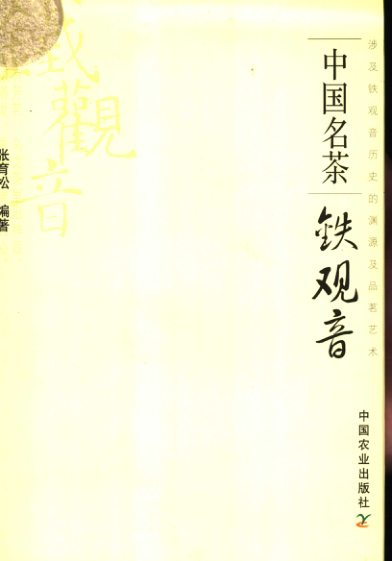 涉及铁观音历史的渊源及品茗艺术
中国名茶
鉄观音
中国农业出版社
觀音
张育松 编著